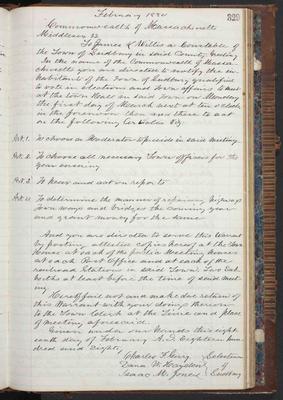 February 1880
329
Commonwealth of Massachusetts
Middlesex SS
To James L Willis a Constable of
the Town of Sudbury in said County, Greeting
In the name of the Commonwealth of Massa-
chusetts you are directed to notify the in-
habitants of the Town of Sudbury qualified
to vote in elections and Town affairs to meet
at the Town House in said town on Monday
the first day of March next at ten o'clock
in the forenoon then and there to act
on the following articles viz:
Art. 1. To choose a Moderator to preside in said meeting.
Art. 2. To choose all necessary Town officers for the
year ensuing
Art. 3. To hear and act on reports
Art. 4. To determine the manner of repairing highways
town ways and bridges the coming year
and grant money for the same
And you are directed to serve this Warrant
by posting attested copies hereof at the Town
House, at each of the public Meeting houses
at each Post Office and at each of the
railroad Stations in said Town Two
weeks at least before the time of said meet-
ing.
Hereof fail not and make due return of
this Warrant with your doings thereon
to the Town Clerk at the time and place
of meeting aforesaid.
Given under our hands this eight-
eenth day of February A.D. Eighteen hun-
dred and Eighty,
Charles F. Gerry
Selectmen
Dana W. Hayden
of
Isaac M. Jones
Sudbury